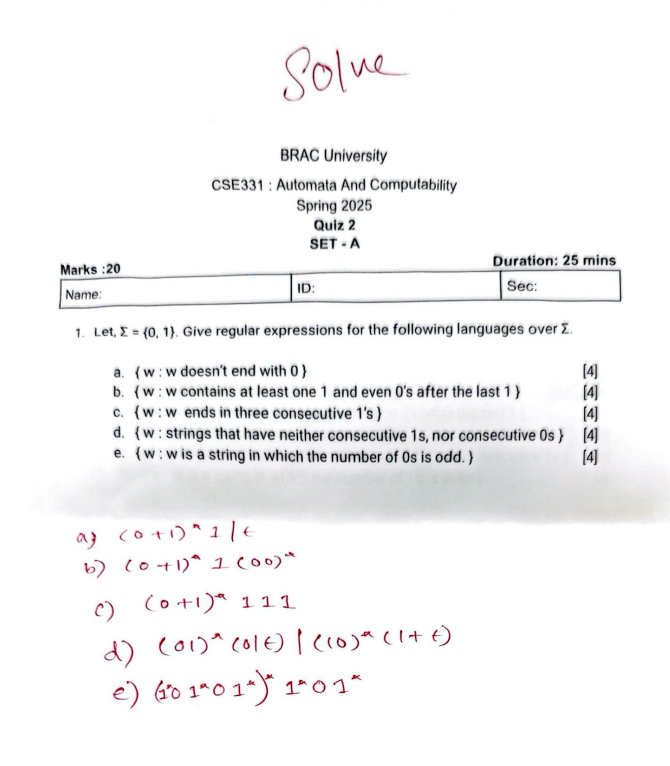 Solve
BRAC University
CSE331 : Automata And Computability
Spring 2025
Quiz 2
SET - A
Marks :20 Duration: 25 mins
Name: ID: Sec:
1. Let, Σ = {0, 1}. Give regular expressions for the following languages over Σ.
a. {w : w doesn't end with 0} [4]
b. {w : w contains at least one 1 and even 0's after the last 1 } [4]
c. {w : w ends in three consecutive 1's } [4]
d. {w : strings that have neither consecutive 1s, nor consecutive 0s } [4]
e. {w : w is a string in which the number of 0s is odd. } [4]
a) (0+1)* 1 | ε
b) (0+1)* 1 (00)*
c) (0+1)* 111
d) (01)* (0|ε) | (10)* (1+ε)
e) (1*0 1*0 1*)* 1*0 1*